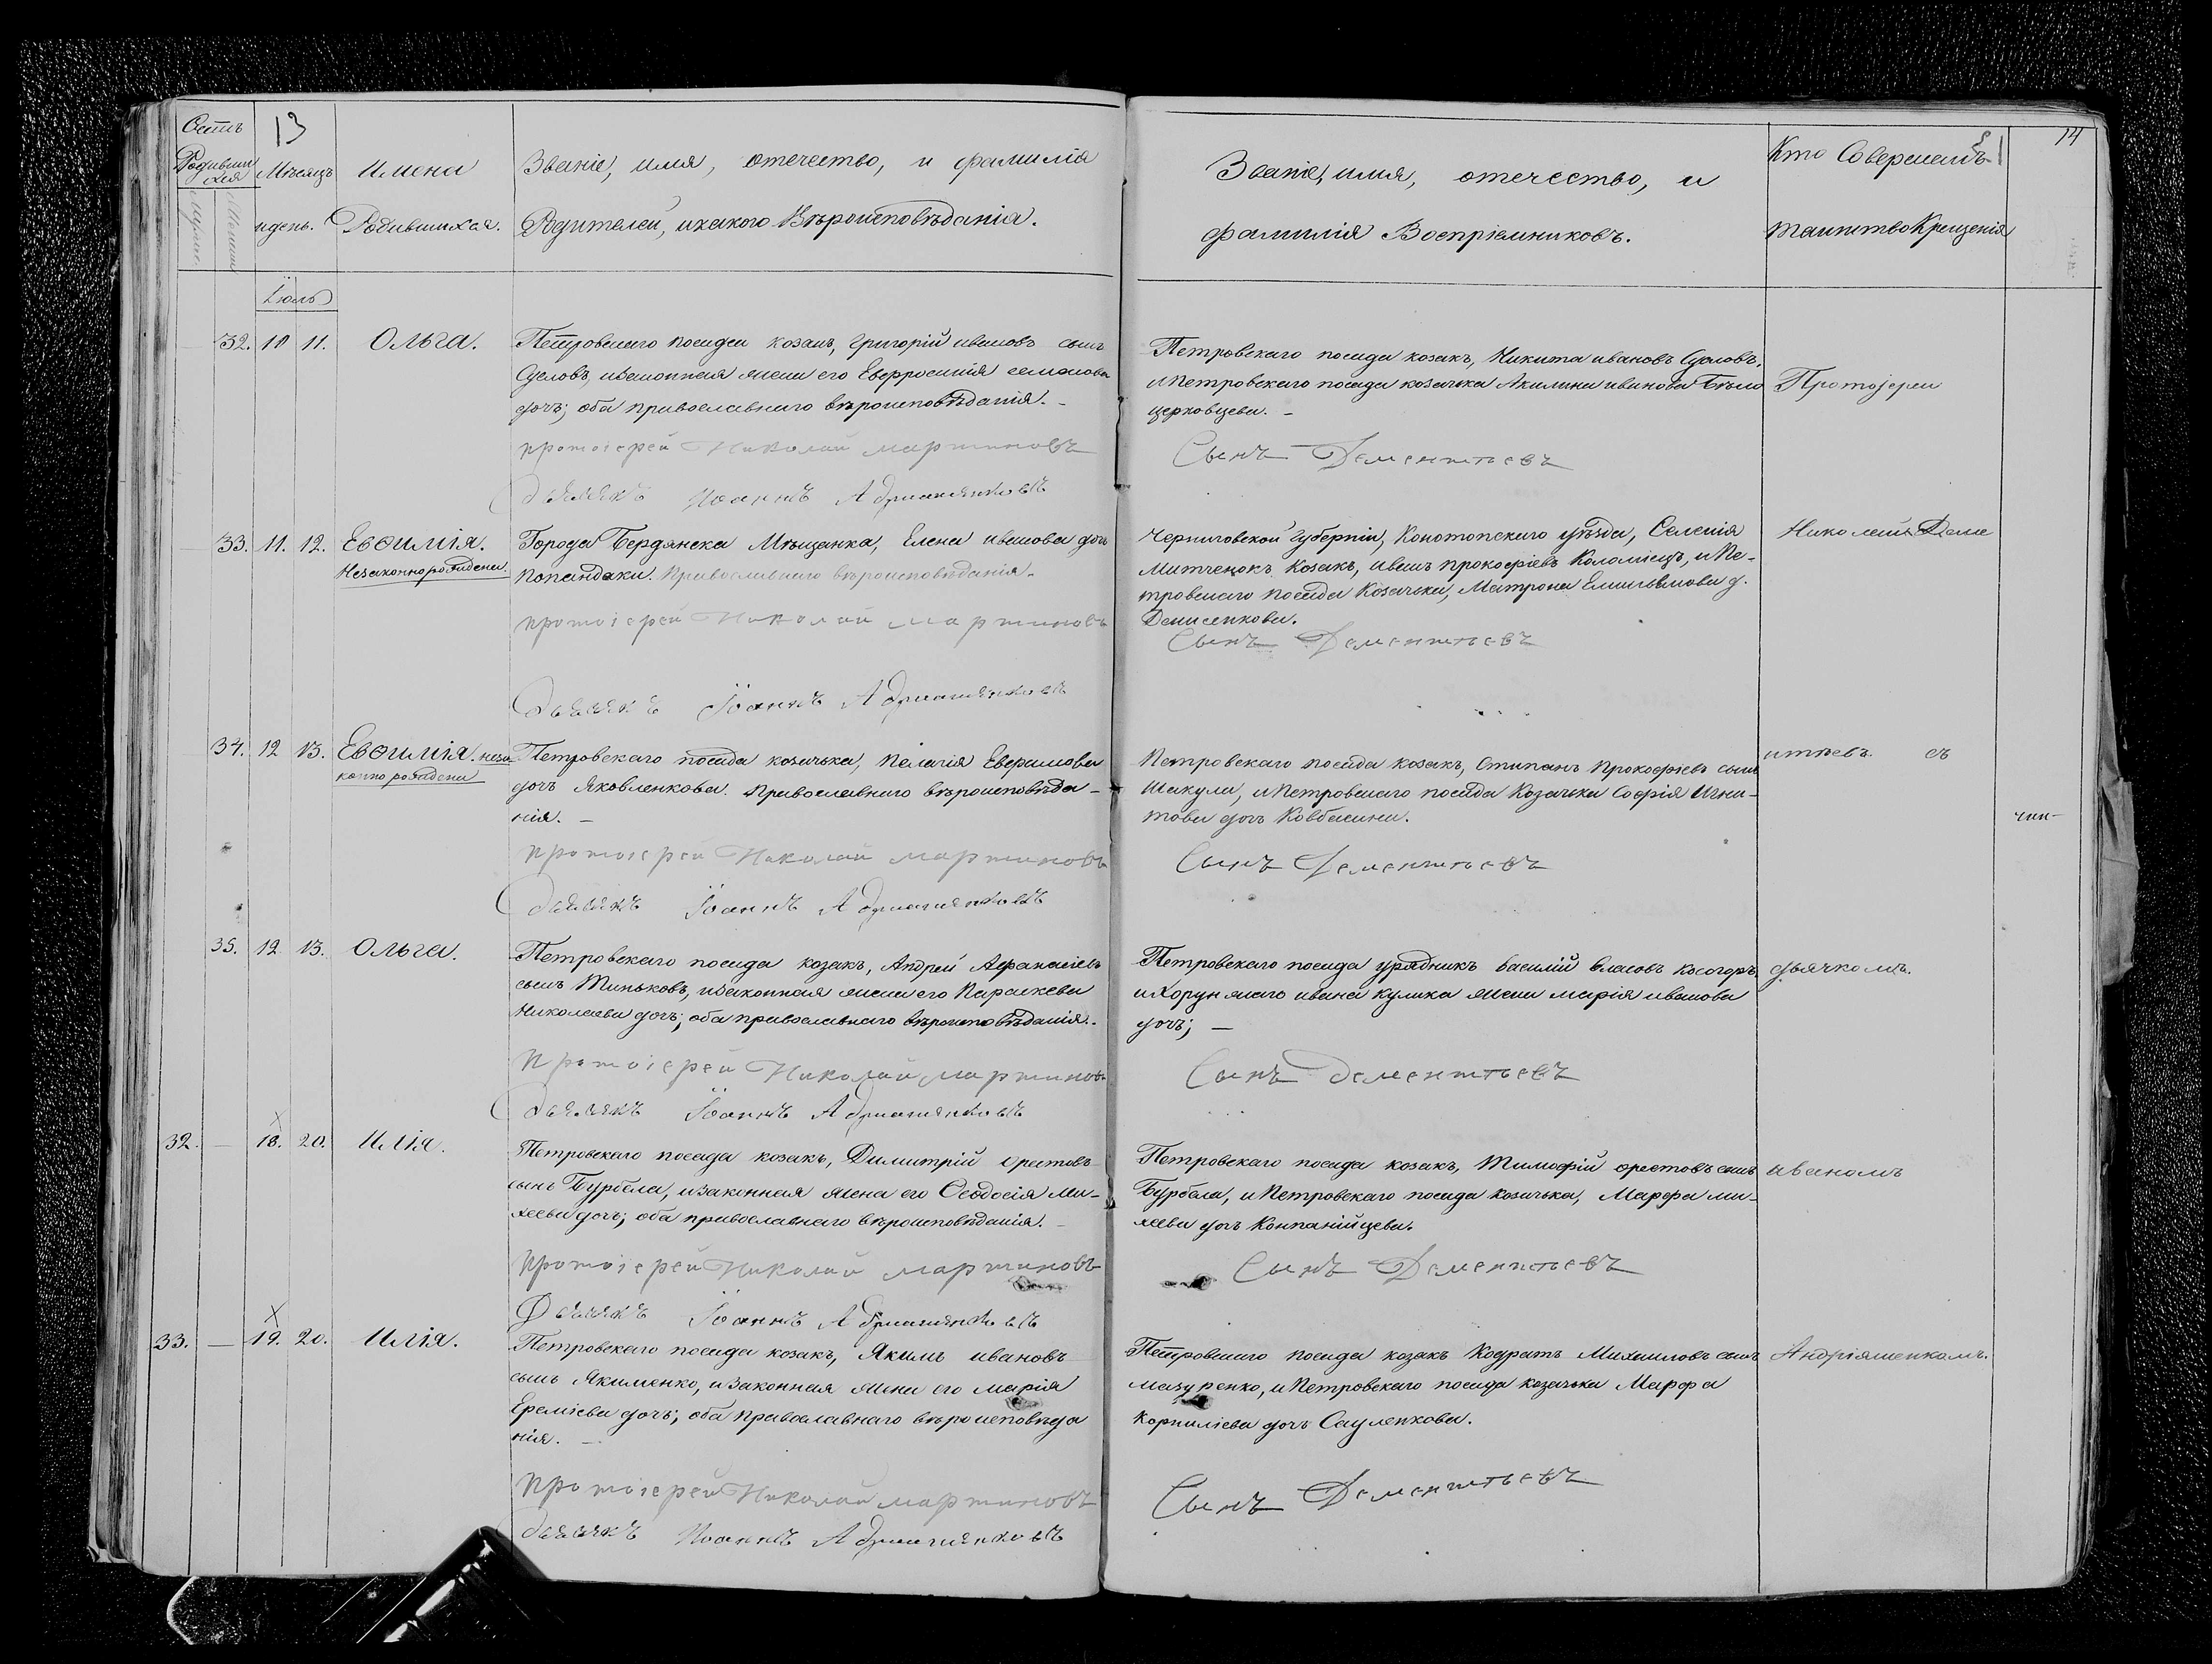 13
14
Родивши
хся
Мѣсяцъ
и день.
Имена
Родившихся.
Званіе, имя, отечество, и фамилія
Родителей, и какого Вѣроисповѣданія.
Званіе, имя, отечество, и
фамилія Воспріемниковъ.
Кто Совершалъ
таинство Крещенія
Іюль
32. 10 11. Ольга.
Петровскаго посада козакъ, Григорій ивановъ сынъ
и законная жена его Евфросинія семенова
дочь; оба православнаго вѣроисповѣданія. -
протоіерей Николай мартиновъ
дьячекъ Іоаннъ
Петровскаго посада козакъ, Никита ивановъ
и Петровскаго посада козачька Акилина иванова Бѣло
церковцева. -
Сынъ Дементьевъ
Протоіереи
33. 11. 12. Евѳимія.
Незаконнорождена.
Города Бердянска Мѣщанка, Елена иванова дочь
попандаки. Православнаго вѣроисповѣданія.
протоіерей Николай мартиновъ
Дьячекъ Іоаннъ
Черниговской Губерніи, Конотопскаго уѣзда, Селенія
Митченокъ Козакъ, иванъ прокофіевъ Коломіецъ, и Пе-
тровскаго посада Козачька, Матрона Емильянова д.
Денисенкова.
Сынъ Дементьевъ
Николай Деме
34. 12 13. Евѳимія. неза
конно рождена
Петровскаго посада козачька, Пелагія Евфимова
дочь Яковленкова. Православнаго вѣроисповѣда-
нія. -
протоіерей Николай мартиновъ
Дьячекъ Іоаннъ
Петровскаго посада козакъ, Стипанъ Прокофіевъ сынъ
Шакула, и Петровскаго посада Козачька Софія Игна-
това дочь Ковбасина.
Сынъ Дементьевъ
нтьевъ. съ
чин-
35. 12 13. Ольга.
Петровскаго посада козакъ, Андрей Афанасіевъ
сынъ Миньковъ, и законная жена его Параскева
Николаева дочь; оба православнаго вѣроисповѣданія. -
Протоіерей Николай мартиновъ
Дьячекъ Іоаннъ
Петровскаго посада урядникъ василій власовъ косогоръ
и Хорунжаго ивана кулика жена марія иванова
дочь; -
Сынъ дементьевъ
дьячкомъ.
32. - 18. 20. Илія.
Петровскаго посада козакъ, Димитрій орестовъ
сынъ Бурбела, и законная жена его Ѳеодосія ми-
хеева дочь; оба православнаго вѣроисповѣданія. -
протоіерей Николай мартиновъ
Дьячекъ Іоаннъ
Петровскаго посада козакъ, Тимофій орестовъ сынъ
Бурбела, и Петровскаго посада козачька, Марфа ми-
хеева дочьКонпанійцева.
Сынъ Дементьевъ
иваномъ
33. - 19. 20. Илія.
Петровскаго посада козакъ, Якимъ ивановъ
сынъ Якименко, и законная жена его марія
Ереміева дочь; оба православнаго вѣроисповѣда
нія. -
протоіерей Николай мартиновъ
дьячекъ Іоаннъ
Петровскаго посада козакъ Кодратъ Михаиловъ сынъ
мазуренко, и Петровскаго посада козачька Марфа
Корниліева дочь Сауленкова.
Сынъ Дементьевъ
Андріяшенкомъ.